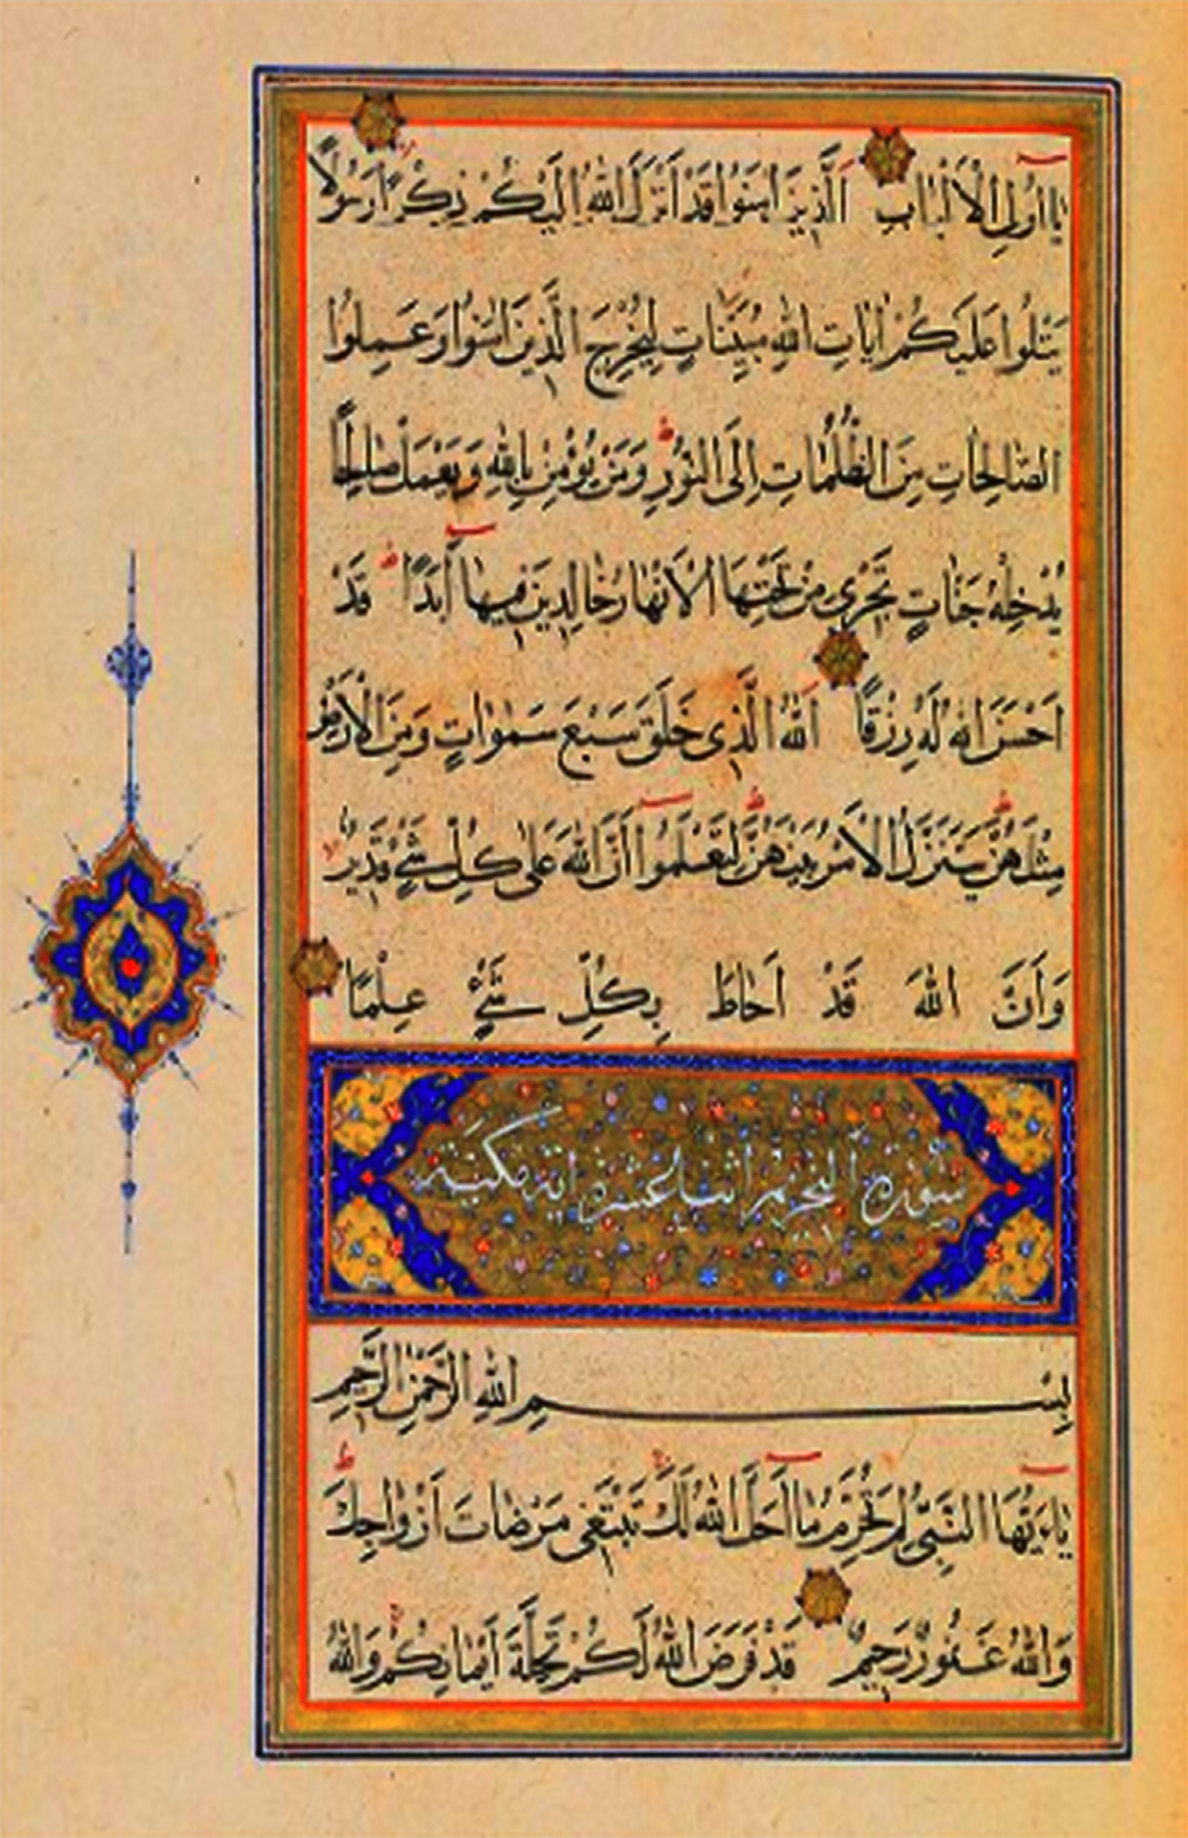 يَا اُولِي الْاَلْبَابِ اَلَّذِينَ اٰمَنُوا قَدْ اَنْزَلَ اللّٰهُ اِلَيْكُمْ ذِكْرًا رَسُولًا
يَتْلُوا عَلَيْكُمْ اٰيَاتِ اللّٰهِ مُبَيِّنَاتٍ لِيُخْرِجَ الَّذِينَ اٰمَنُوا وَعَمِلُوا
الصَّالِحَاتِ مِنَ الظُّلُمَاتِ اِلَى النُّورِ وَمَنْ يُؤْمِنْ بِاللّٰهِ وَيَعْمَلْ صَالِحًا
يُدْخِلْهُ جَنَّاتٍ تَجْرِي مِنْ تَحْتِهَا الْاَنْهَارُ خَالِدِينَ فِيهَا اَبَدًا قَدْ
اَحْسَنَ اللّٰهُ لَهُ رِزْقًا اَللّٰهُ الَّذِي خَلَقَ سَبْعَ سَمٰوَاتٍ وَمِنَ الْاَرْضِ
مِثْلَهُنَّ يَتَنَزَّلُ الْاَمْرُ بَيْنَهُنَّ لِتَعْلَمُوا اَنَّ اللّٰهَ عَلٰى كُلِّ شَيْءٍ قَدِيرٌ
وَاَنَّ اللّٰهَ قَدْ اَحَاطَ بِكُلِّ شَيْءٍ عِلْمًا
سورة التحريم اثنتا عشرة اية مكية
بِسْمِ اللّٰهِ الرَّحْمٰنِ الرَّحِيمِ
يَاءَيُّهَا النَّبِيُّ لِمَ تُحَرِّمُ مَا اَحَلَّ اللّٰهُ لَكَ تَبْتَغِي مَرْضَاتَ اَزْوَاجِكَ
وَاللّٰهُ غَفُورٌ رَحِيمٌ قَدْ فَرَضَ اللّٰهُ لَكُمْ تَحِلَّةَ اَيْمَانِكُمْ وَاللّٰهُ